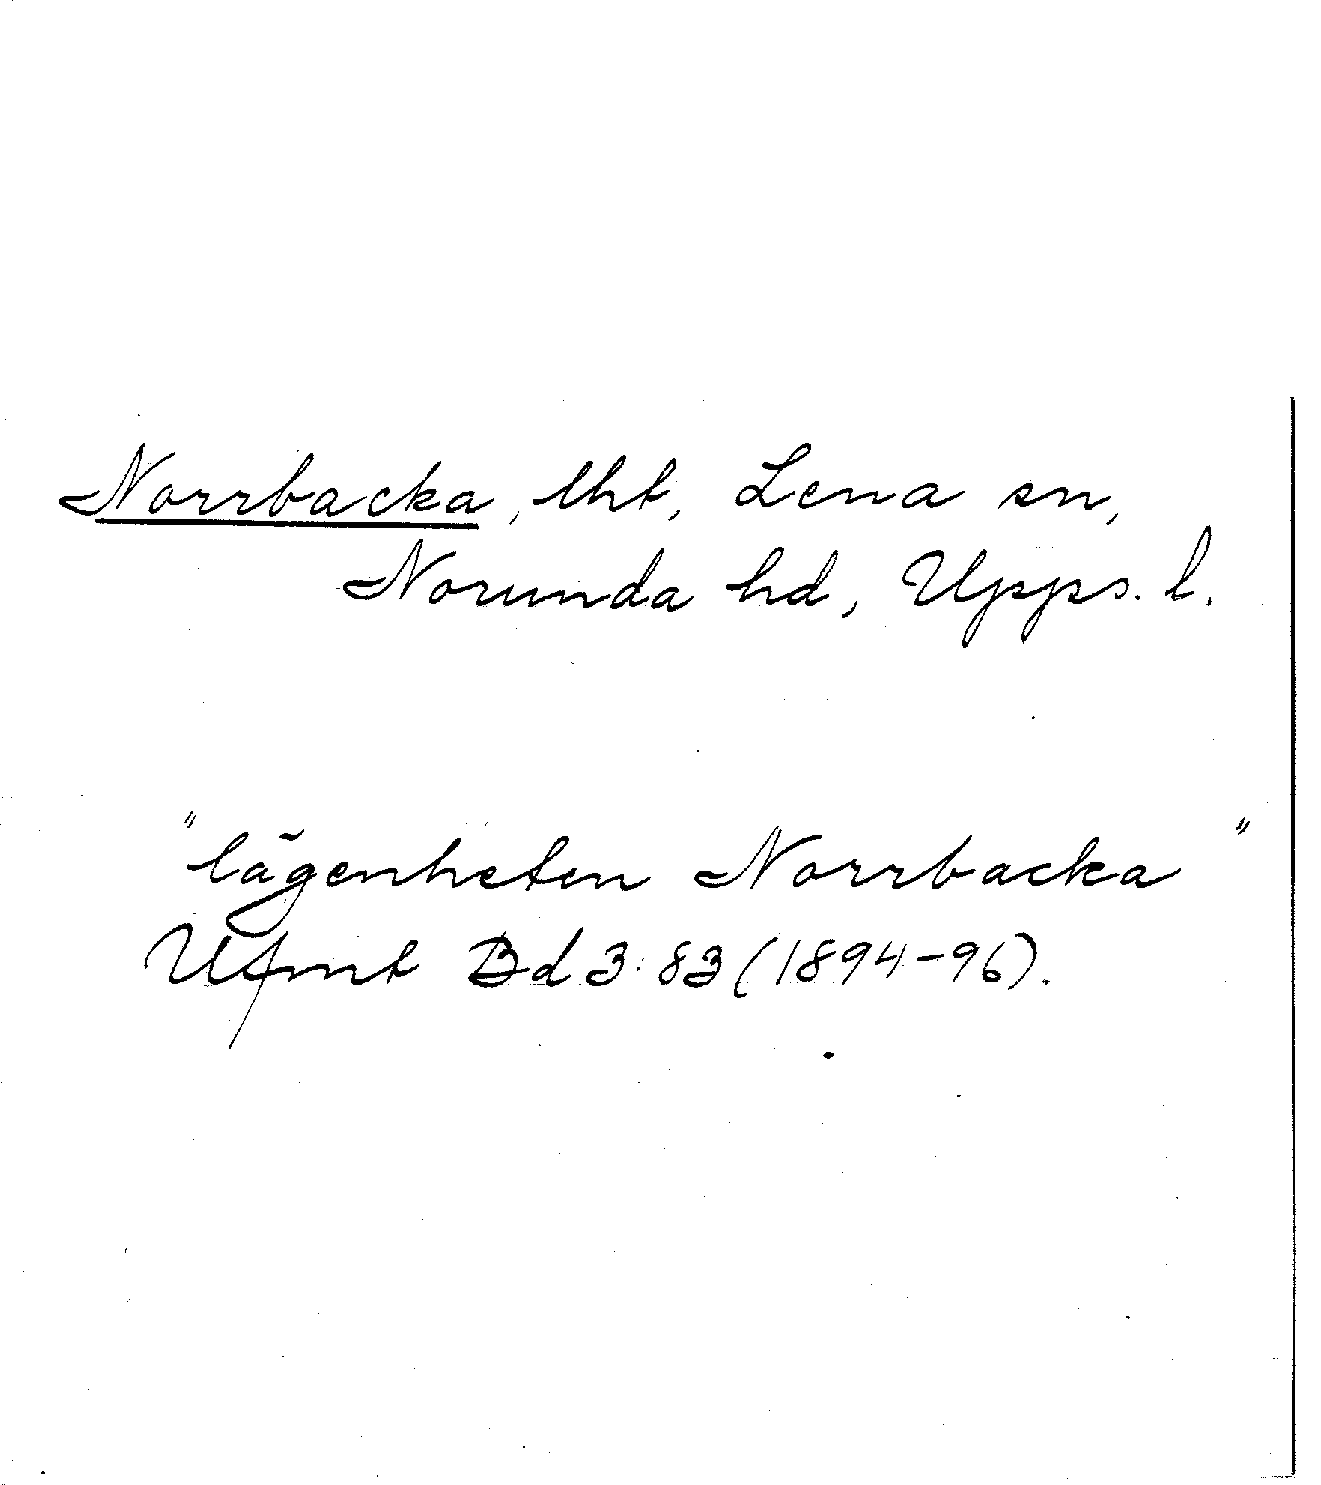 Norrbacka, lht, Lena sn,
Norunda hd, Upps. l.
"lägenheten Norrbacka"
Ufmt Bd 3:83 (1894-96).